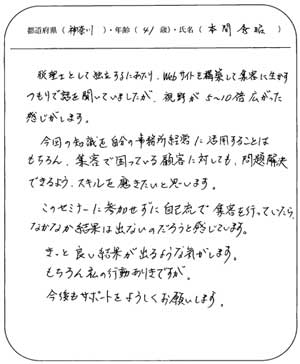 都道府県（神奈川）・年齢（41歳）・氏名（本間秀昭）
税理士として独立するにあたり、Webサイトを構築して集客に生かす
つもりで話を聞いていましたが、視野が5〜10倍広がった
感じがします。
今回の知識を自分の事務所経営に活用することは
もちろん、集客で困っている顧客に対しても、問題解決
できるよう、スキルを磨きたいと思います。
このセミナーに参加せずに自己流で集客を行っていたら、
なかなか結果は出ないのだろうと感じています。
きっと良い結果が出るような気がします。
もちろん私の行動ありきですが。
今後もサポートをよろしくお願いします。